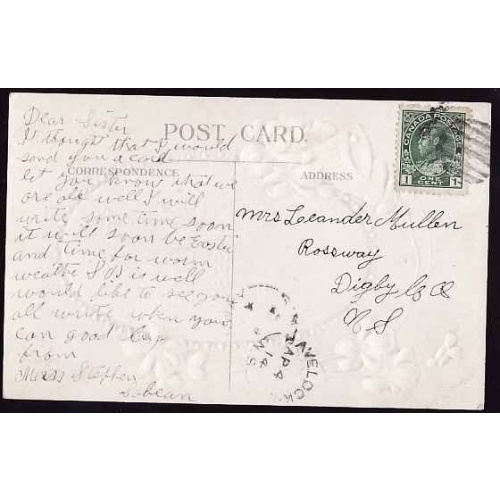 Dear Sister
I thought that I would
send you a card
let you know that we
are all well I will
write some time soon
it will soon be Easter
and time for warm
weathe S B is well
would like to see you
all write when you
can good bye
from
Mrs Stephen
POST CARD.
CORRESPONDENCE
ADDRESS
CANADA POSTAGE
1 ONE CENT 1
Mrs Leander Mullen
Rossway
Digby Co
N S
HAVELOCK
AP 4
14
N.S.